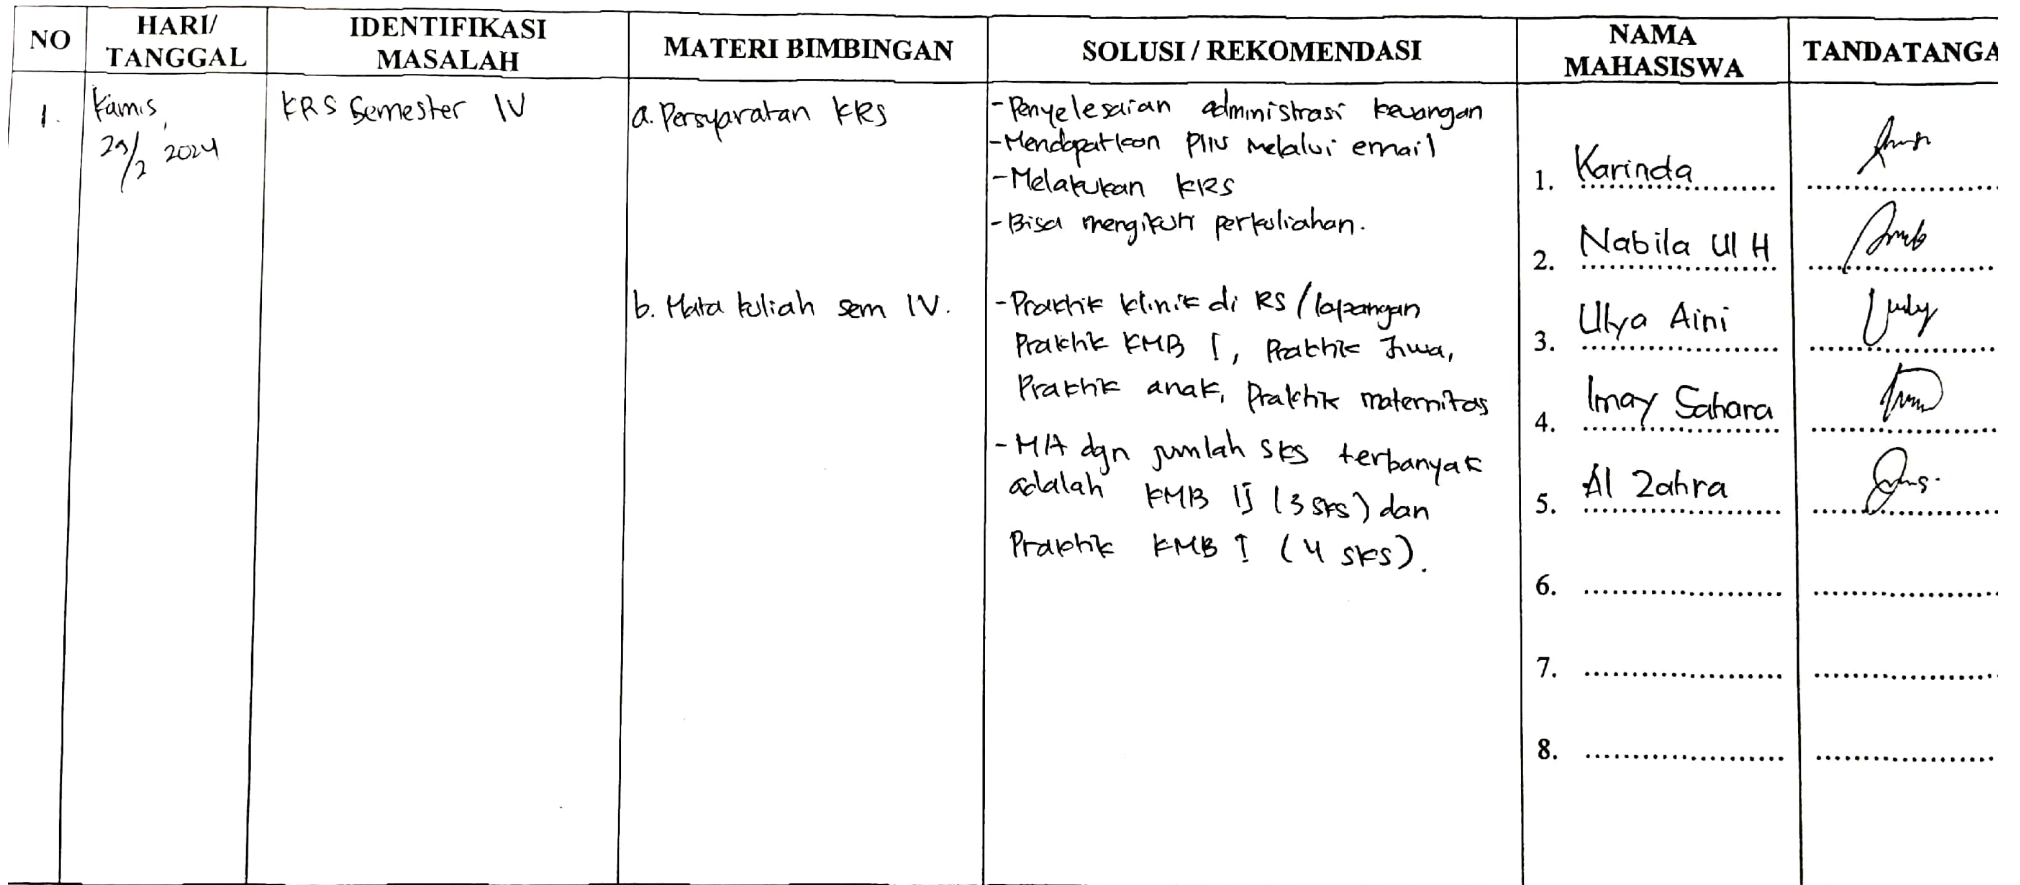 NO
HARI/
TANGGAL
IDENTIFIKASI
MASALAH
MATERI BIMBINGAN
SOLUSI / REKOMENDASI
NAMA
MAHASISWA
TANDATANGA
1.
Kamis,
29/2 2024
KRS Semester IV
a. Persyaratan KRS
- Penyelesaian administrasi keuangan
- Mendapatkan PIN melalui email
- Melakukan KRS
- Bisa mengikuti perkuliahan.
b. Mata kuliah sem IV.
- Praktik klinik di RS / lapangan
Praktik KMB I, Praktik Jiwa,
Praktik anak, Praktik maternitas
- MA dgn jumlah sks terbanyak
adalah KMB II (3 sks) dan
Praktik KMB I (4 sks).
1. Karinda
2. Nabila Ul H
3. Ulya Aini
4. Imay Sahara
5. Al Zahra
6.
7.
8.